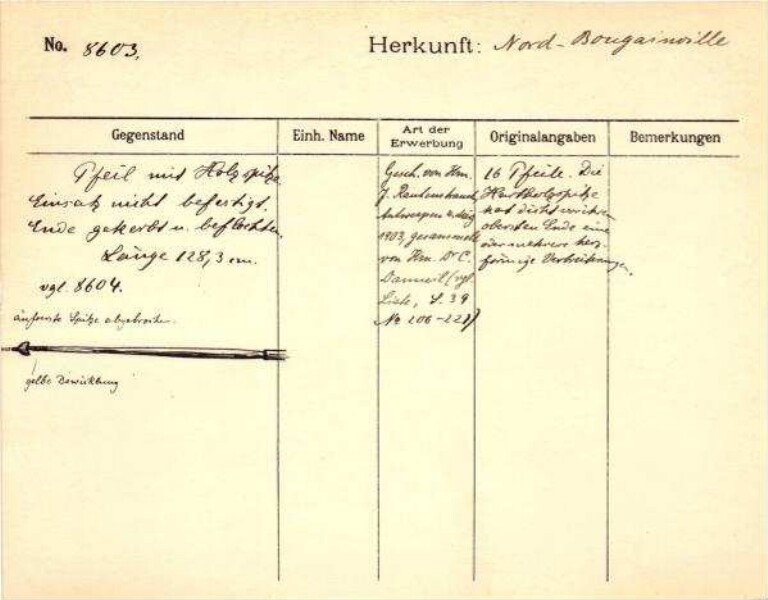 No. 8603.
Herkunft: Nord-Bougainville
Gegenstand
Einh. Name
Art der Erwerbung
Originalangaben
Bemerkungen
Pfeil mit Holzspitze
Einsatz nicht befestigt.
Ende gekerbt u. beflochten.
Länge 128,3 cm.
vgl. 8604.
äusserste Spitze abgebrochen.
gelbe Bewicklung
Gesch. von Hrn.
J. Rautenstrauch,
Antwerpen
1903, gesammelt
von Hrn. Dr C.
Danneil (vgl.
Liste, S. 39
No 206-221)
16 Pfeile. Die
Hartholzspitze
hat dicht
obersten Ende eine
oder mehrere herz-
förmige Verdickungen.